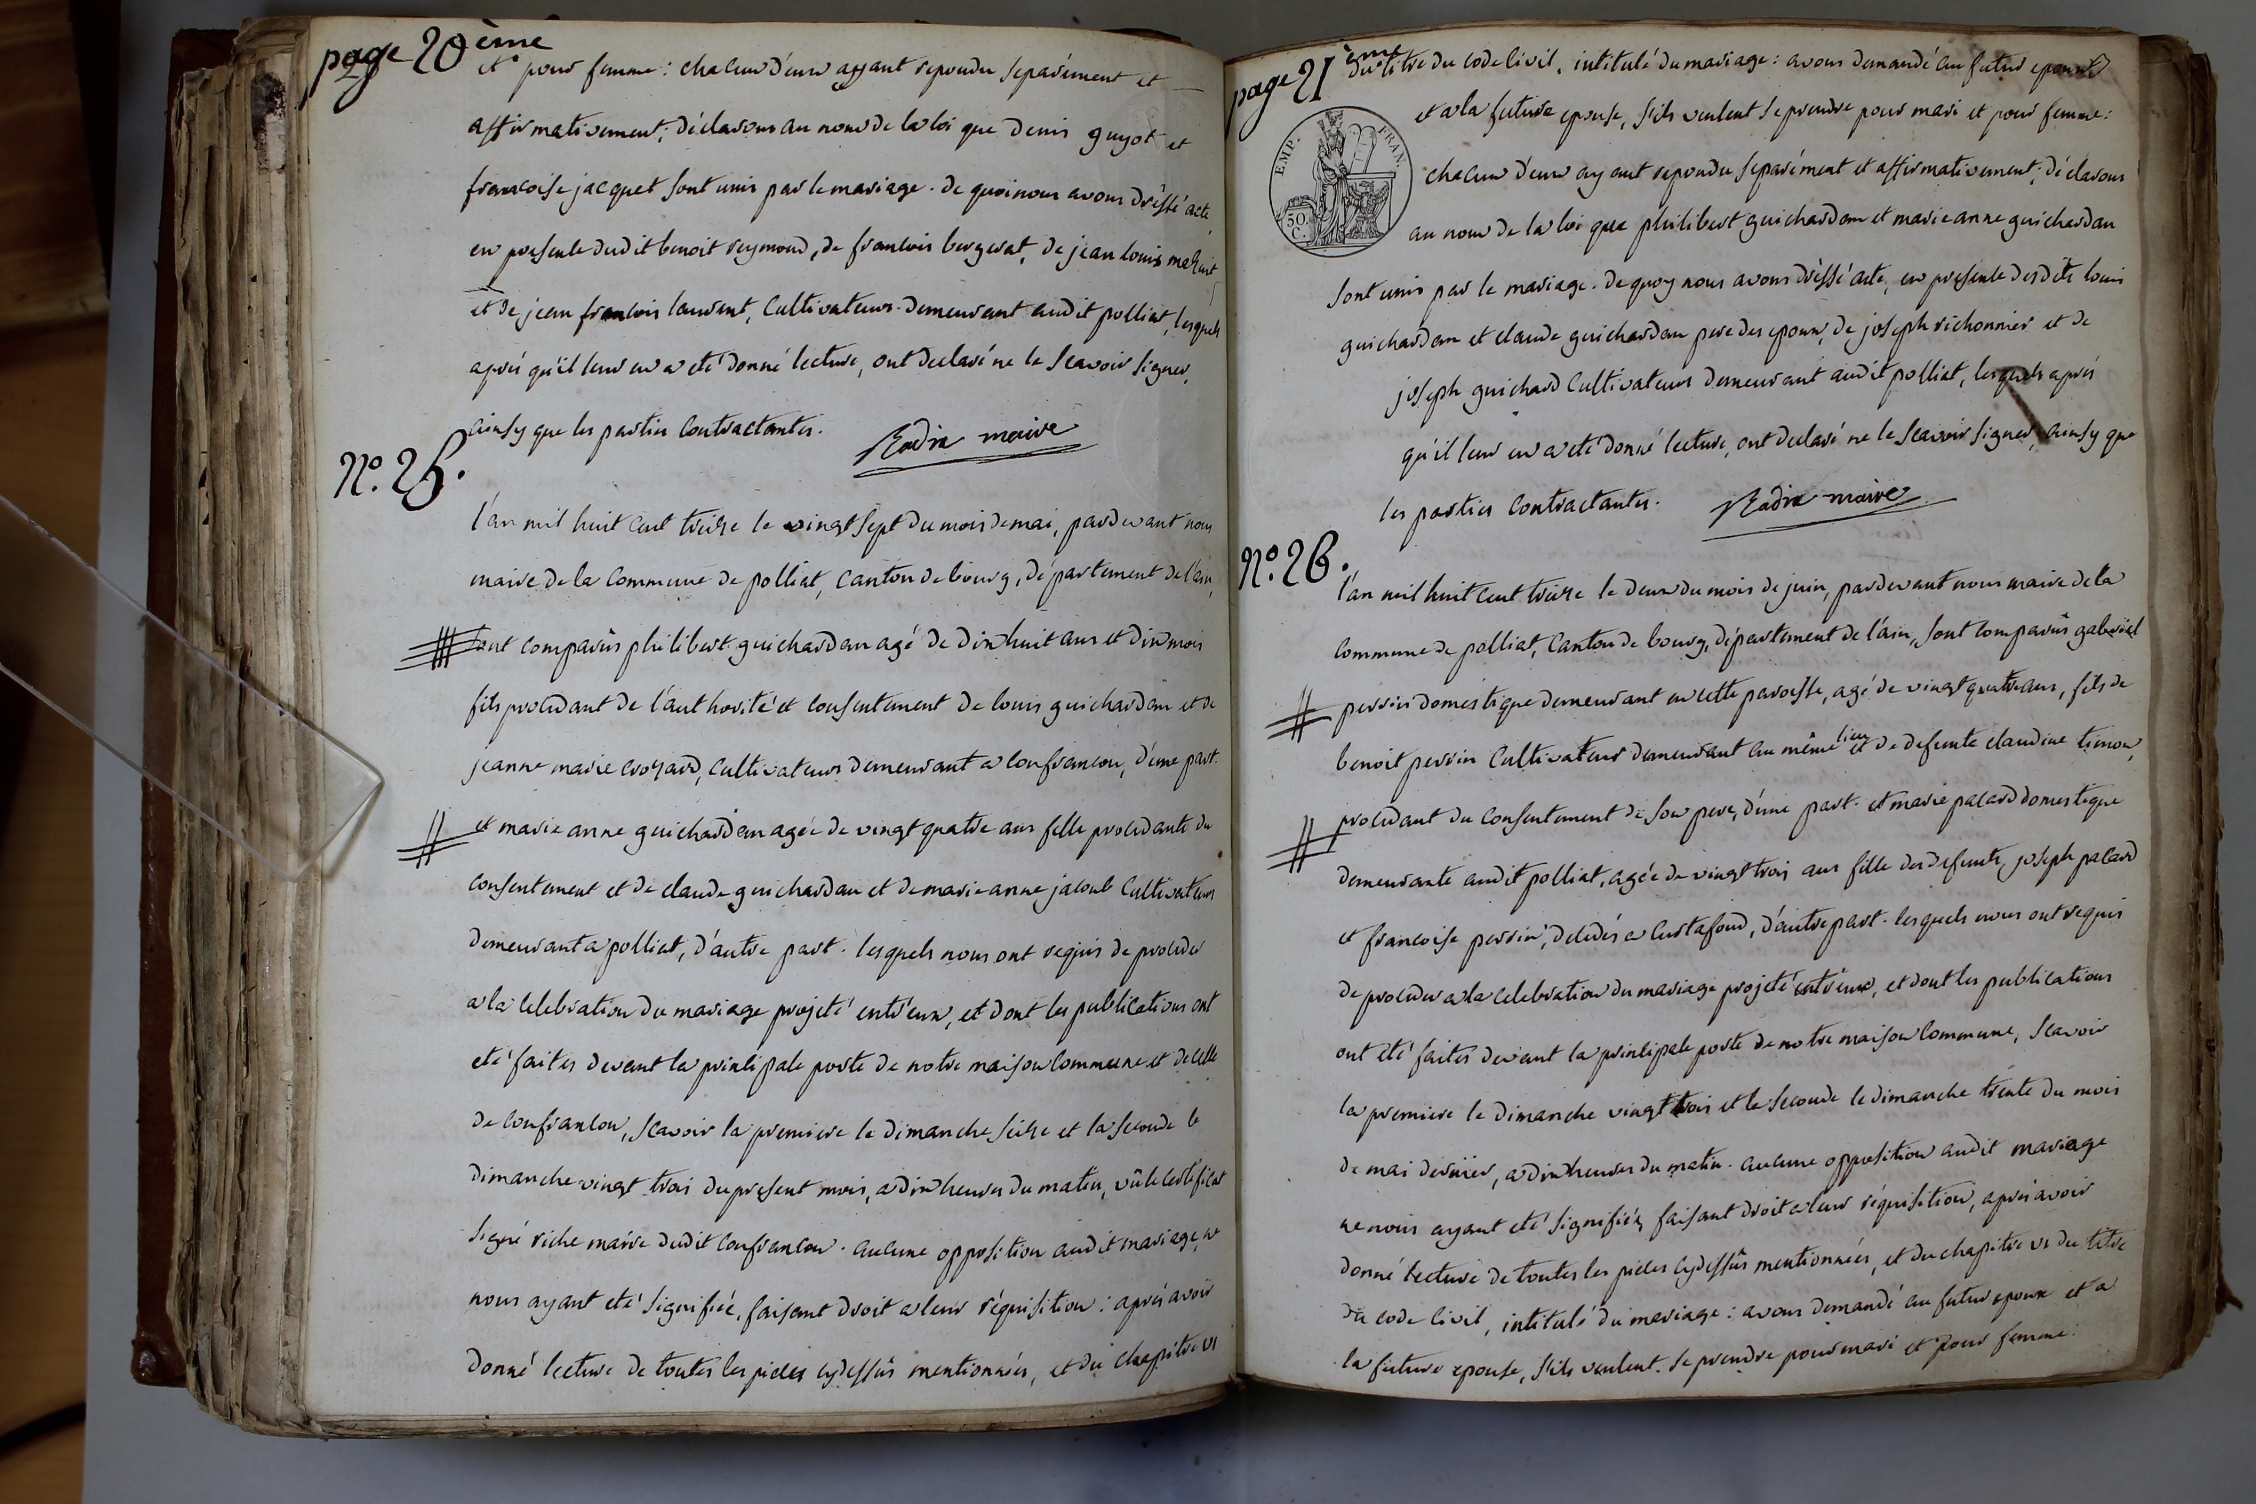 page 20 ème
et pour femme : chacun d'eux ayant repondu separément et
affirmativement; déclarons au nom de la loi que denis guyot et
francoise jacquet sont unis par le mariage. de quoi nous avons dréssé acte
en presence dudit benoit reymond, de francois bergerat, de jean louis
et de jean francois laurent, cultivateurs demeurant audit polliat, lesquels
aprés qu'il leur en a eté donné lecture, ont declaré ne le scavoir signer,
ainsy que les parties contractantes.
Rodix maire
N.º 25.
l'an mil huit cent treize le vingt sept du mois de mai, pardevant nous
maire de la commune de polliat, canton de bourg, département de l'ain,
sont comparûs philibert guichardan agé de dix huit ans et dix mois
fils procedant de l'authorité et consentement de louis guichardan et de
jeanne marie crozard, cultivateurs demeurant a confrancon, d'une part.
et marie anne guichardan agée de vingt quatre ans fille procedante du
consentement et de claude guichardan et de marie anne jacoub cultivateurs
demeurant a polliat, d'autre part. lesquels nous ont requis de proceder
a la celebration du mariage projeté entr'eux, et dont les publications ont
eté faites devant la principale porte de notre maison commune et de celle
de confrancon, scavoir la premiere le dimanche seize et la seconde le
dimanche vingt trois du present mois, a dix heures du matin, vû le certificat
signé riche maire dudit confrancon. aucune opposition audit mariage, ne
nous ayant eté signifiée, faisant droit a leur réquisition : aprés avoir
donné lecture de toutes les pieces cydessûs mentionnées, et du chapitre VI
page 21 ème
du titre du code civil, intitulé du mariage : avons demandé au futur epoux
et a la future epouse, s'ils veulent se prendre pour mari et pour femme :
EMP. FRAN.
50. C.
chacun d'eux ayant repondu separément et affirmativement; déclarons
au nom de la loi que philibert guichardan et marie anne guichardan
sont unis par le mariage. de quoy nous avons dréssé acte, en presence desdits louis
guichardan et claude guichardan pere des epoux, de joseph richonnier et de
joseph guichard cultivateurs demeurant audit polliat, lesquels aprés
qu'il leur en a eté donné lecture, ont declaré ne le scavoir signer, ainsy que
les parties contractantes.
Rodix maire
N.º 26.
l'an mil huit cent treize le deux du mois de juin, pardevant nous maire de la
commune de polliat, canton de bourg, département de l'ain, sont comparûs gabriel
perrin domestique demeurant en cette paroisse, agé de vingt quatre ans, fils de
benoit perrin cultivateur demeurant au même lieu et de defunte claudine tienon,
procedant du consentement de son pere, d'une part. et marie pacard domestique
demeurante audit polliat, agée de vingt trois ans fille des defunts joseph pacard
et francoise perrin, decedés a curtafond, d'autre part. lesquels nous ont requis
de proceder a la celebration du mariage projeté entr'eux, et dont les publications
ont eté faites devant la principale porte de notre maison commune, scavoir
la premiere le dimanche vingt trois et la seconde le dimanche trente du mois
de mai dernier, a dix heures du matin. aucune opposition audit mariage
ne nous ayant eté signifiée, faisant droit a leur réquisition, aprés avoir
donné lecture de toutes les pieces cydessûs mentionnées, et du chapitre VI du titre
du code civil, intitulé du mariage : avons demandé au futur epoux et a
la future epouse, s'ils veulent se prendre pour mari et pour femme :